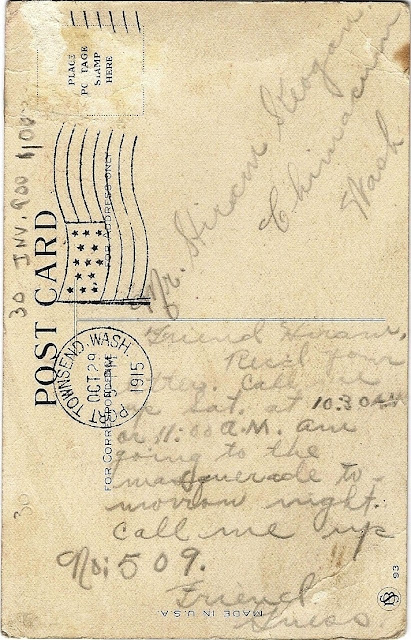 PLACE
POSTAGE
STAMP
HERE
30 INV. 900
POST CARD
FOR ADDRESS ONLY
Mr. Hiram
Chimacum
Wash
PORT TOWNSEND, WASH.
OCT 29
PM
1915
FOR CORRESPONDENCE
Friend Hiram,
Recd your
letter. Call me
up Sat. at 10:30 A.M.
or 11:00 A.M. am
going to the
masquerade to-
morrow night.
Call me up
No: 509.
Friend
MADE IN U.S.A.
93
30